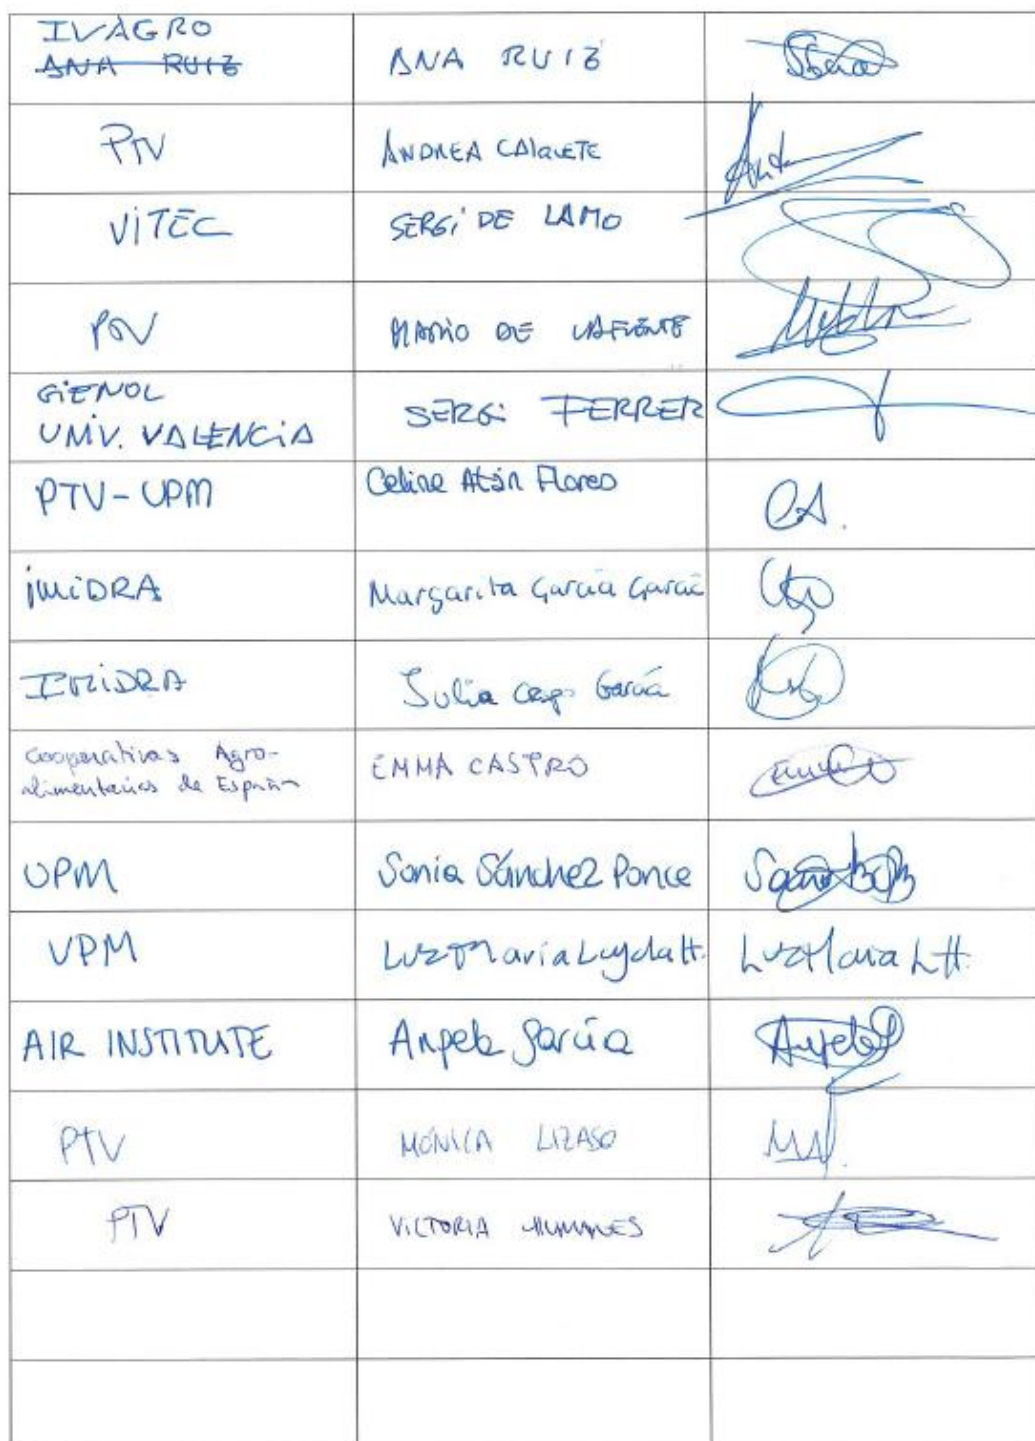 IVAGRO
ANA RUIZ ANA RUIZ
PTV ANDREA CAIQUETE
VITEC SERGI DE LAMO
MARIO DE LAFUENTE
GIENOL
UNIV. VALENCIA SERGI FERRER
PTV-UPM Celine Atán Flores
iMiDRA Margarita García García
IMIDRA Julia García
Cooperativas Agro-
alimentarias de España EMMA CASTRO
UPM Sonia Sánchez Ponce
UPM Luz María H. Luz María L.H.
AIR INSTITUTE Angela García Angela
PTV MÓNICA LIZASO
PTV VICTORIA HUMANES